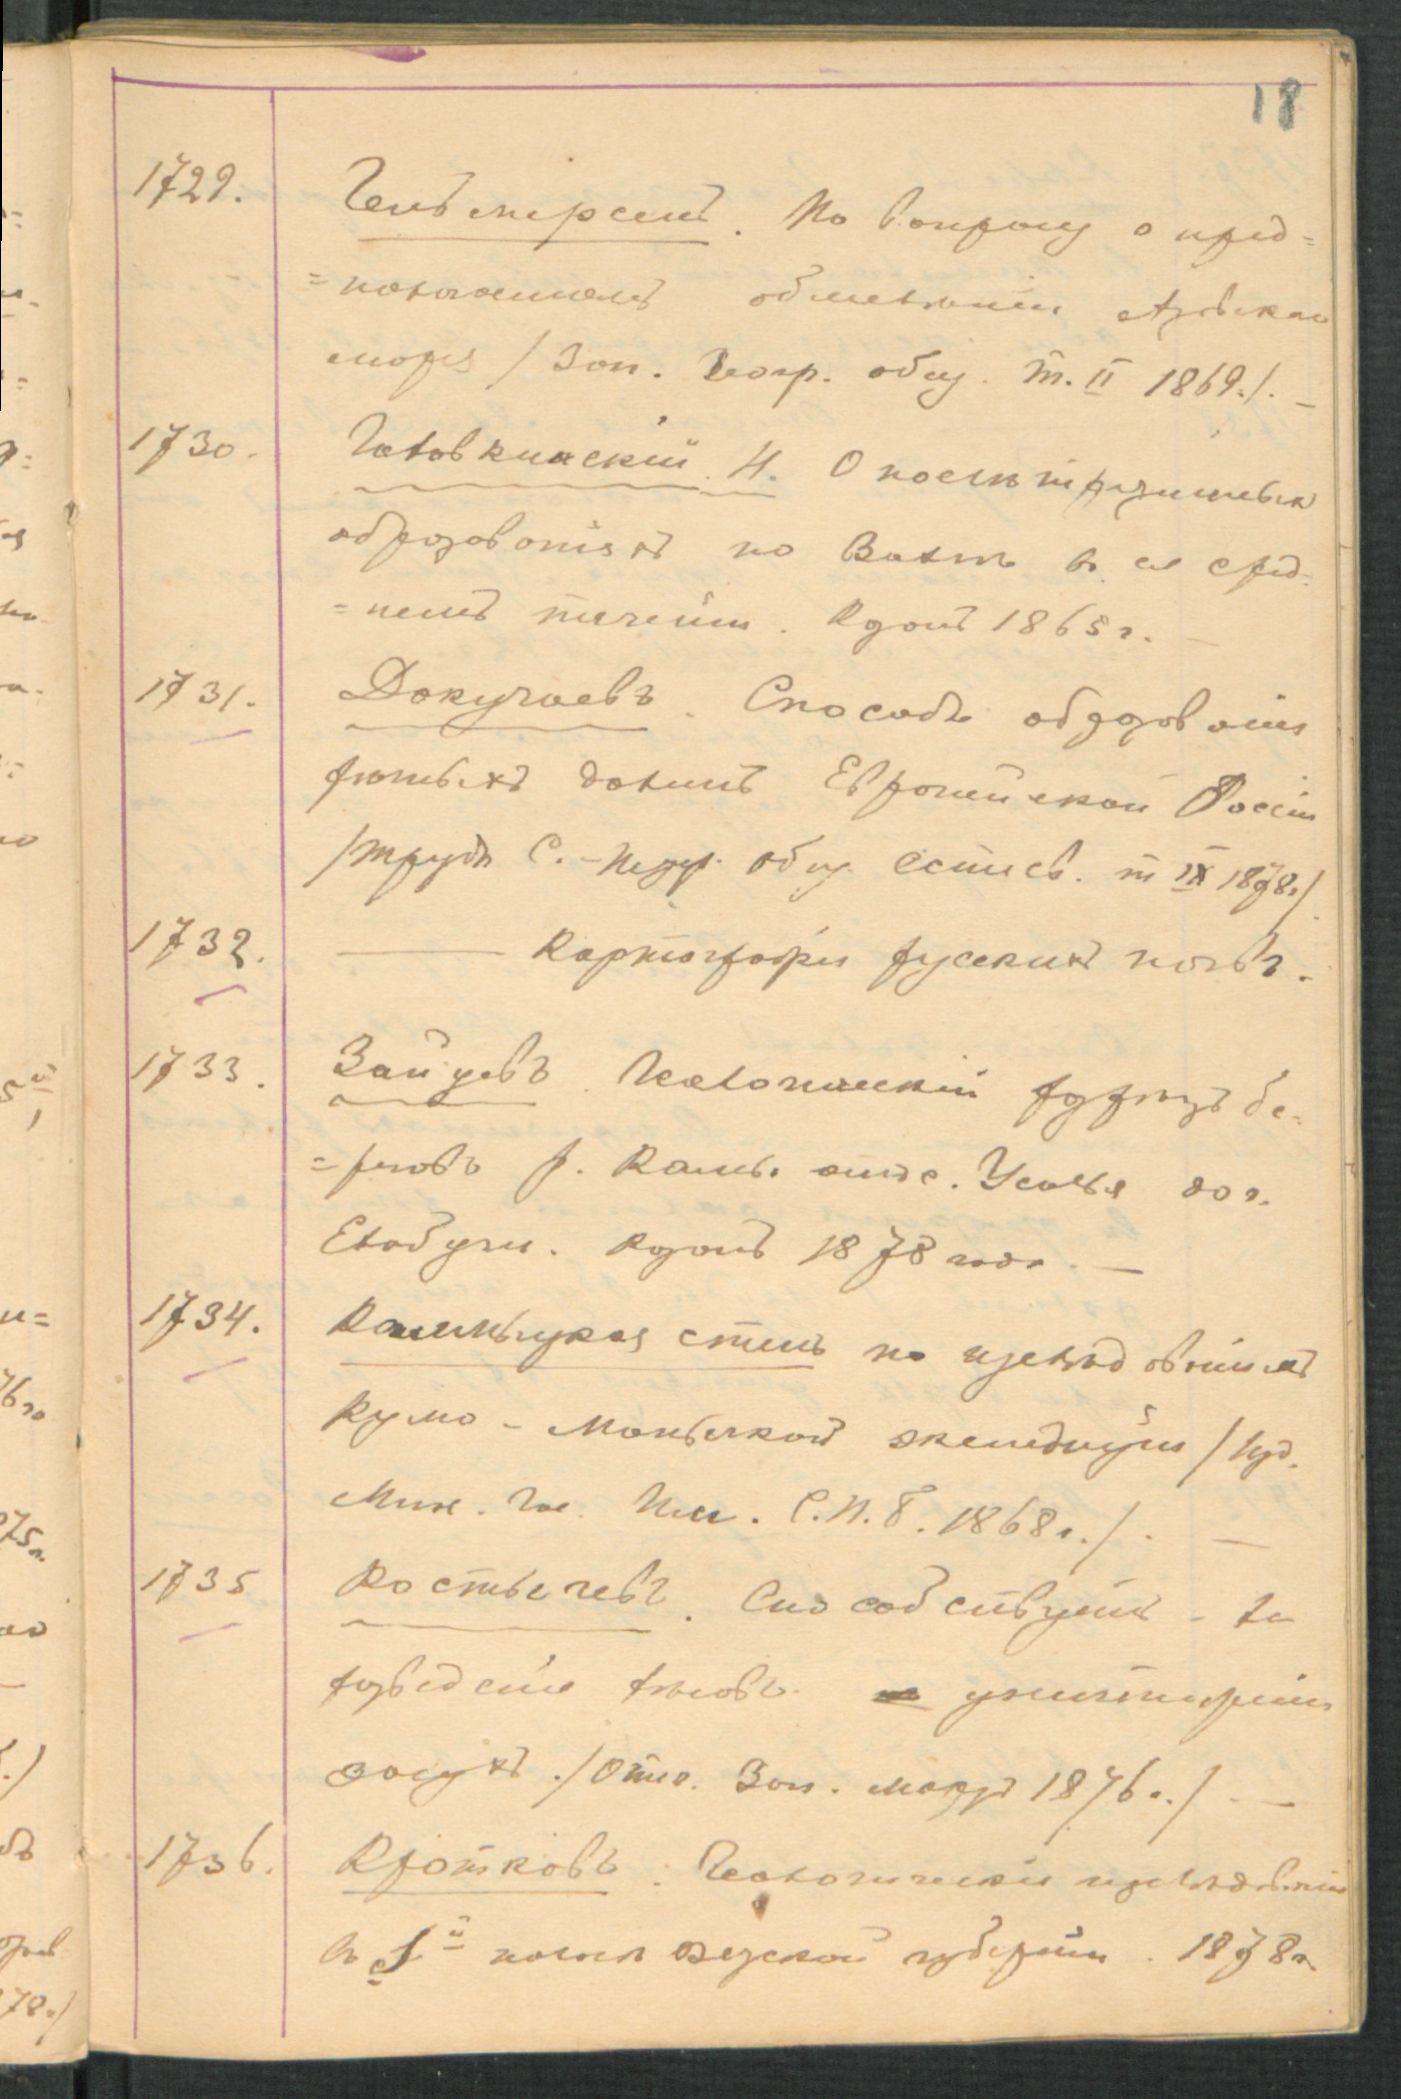 18
1729. Гельмерсенъ. По вопросу о пред=
=полагаемомъ обмеленіи Азовскаго
моря /Зап. Геогр. общ. т. II 1869./. —
1730. Головкинскій Н. О послѣтретичныхъ
образованіяхъ по Волгѣ въ ея сред=
=немъ теченіи. Казань 1865 г. —
1731. Докучаевъ. Способы образованія
рѣчныхъ долинъ Европейской Россіи
/Труды С.-Петер. общ. естеств. т IX 1878./
1732. —— Картографія русскихъ почвъ.
1733. Зайцевъ. Геологическій разрѣзъ бе=
=реговъ р. Камы отъ с. Усолья до г.
Елабуги. Казань 1878 года. —
1734. Калмыцкая степь по изслѣдованіямъ
Кумо-Манычской экспедиціи /Изд.
Мин. Гос. Им. С.П.Б. 1868 г./. —
1735 Костычевъ. Способствуетъ-ли
разведеніе лѣсовъ уничтоженію
засухъ. /Отеч. Зап. Мартъ 1876 г./. —
1736. Кротковъ. Геологическія изслѣдованія
въ 1й полосѣ губерніи. 1878 г.